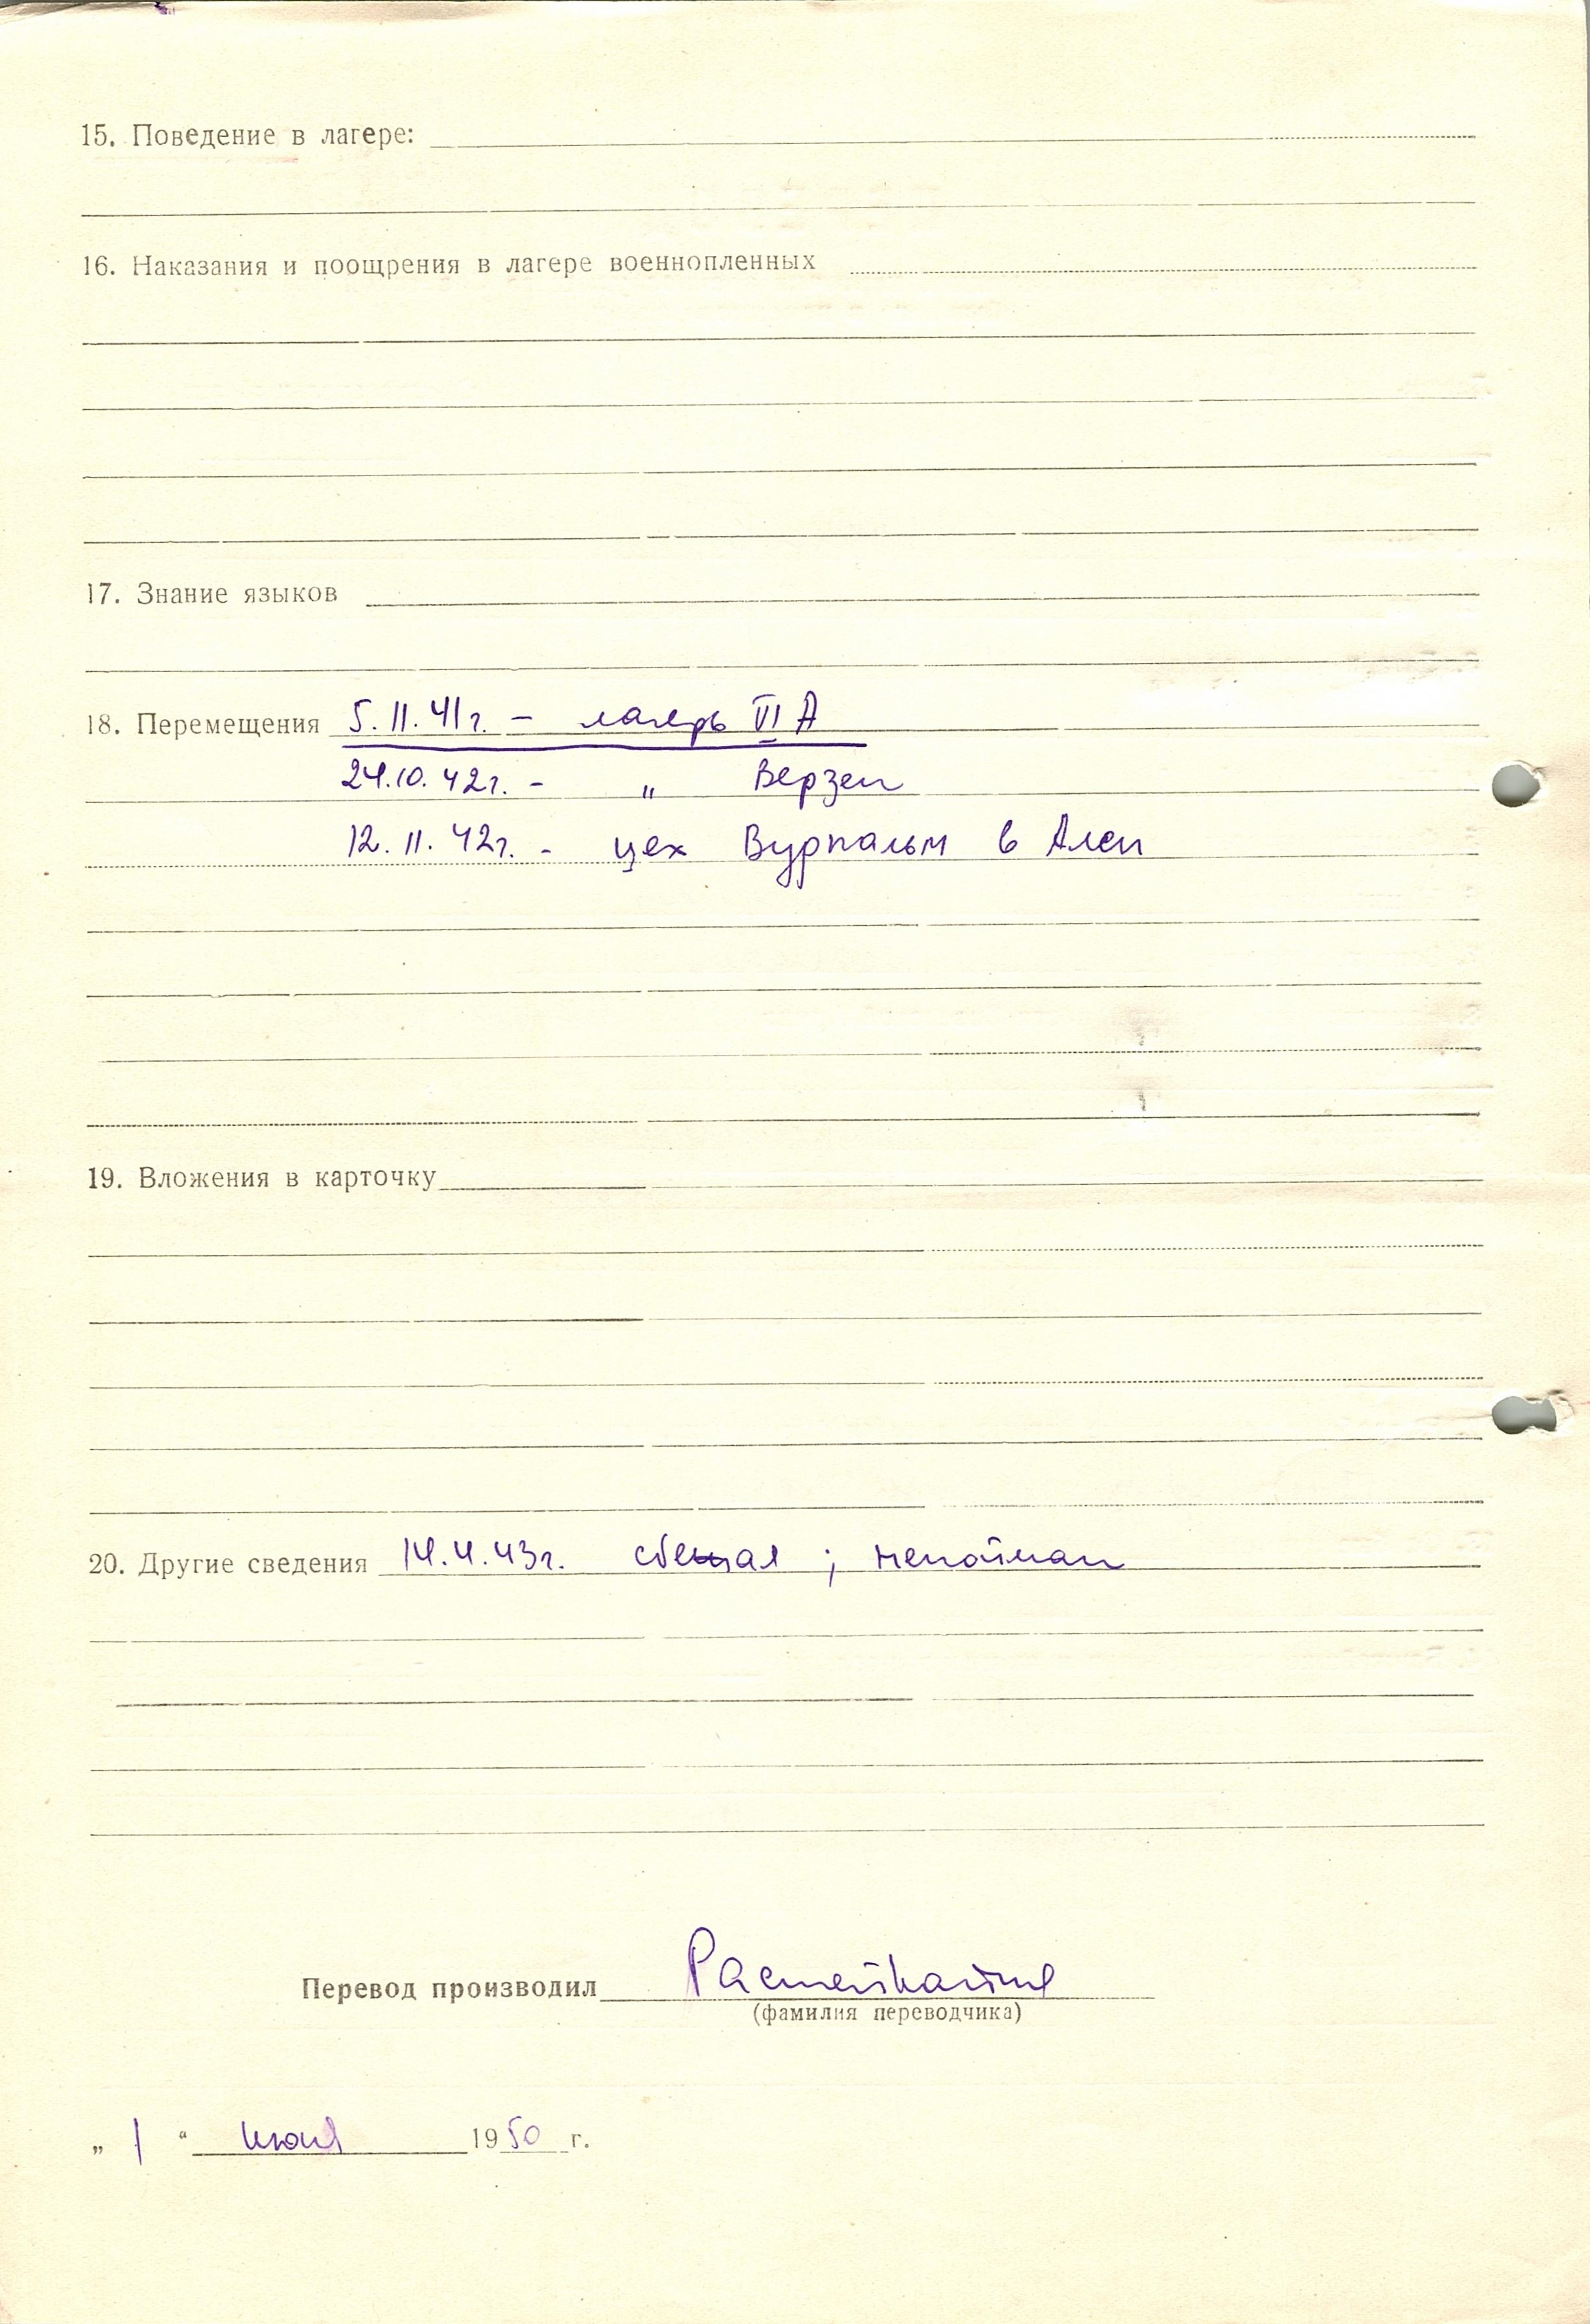 15. Поведение в лагере:
16. Наказания и поощрения в лагере военнопленных
17. Знание языков
18. Перемещения 5.11.41г. – лагерь VI А
24.10.42г. – " Верзен
12.11.42г. – цех Вурпальм в Ален
19. Вложения в карточку
20. Другие сведения 14.4.43г. ; непойман
Перевод производил
(фамилия переводчика)
„ 1 “ июня 1950 г.